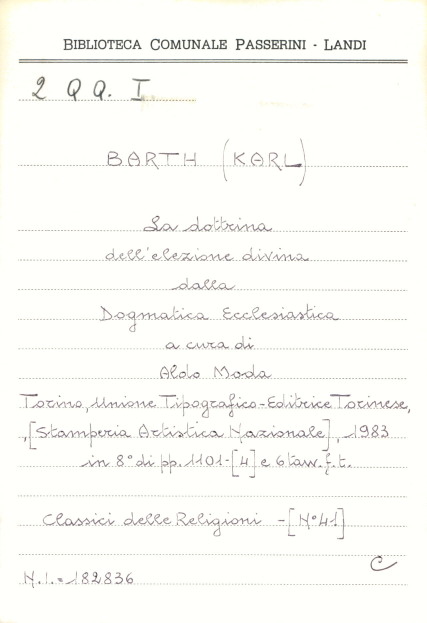 BIBLIOTECA COMUNALE PASSERINI - LANDI
2 Q Q. I
BARTH (KARL)
La dottrina
dell'elezione divina
dalla
Dogmatica Ecclesiastica
a cura di
Aldo Moda
Torino, Unione Tipografico-Editrice Torinese,
,[Stamperia Artistica Nazionale], 1983
in 8° di pp. 1101-[4] e 6 tav. f. t.
Classici delle Religioni - [N° 41]
C
N. I. = 182836